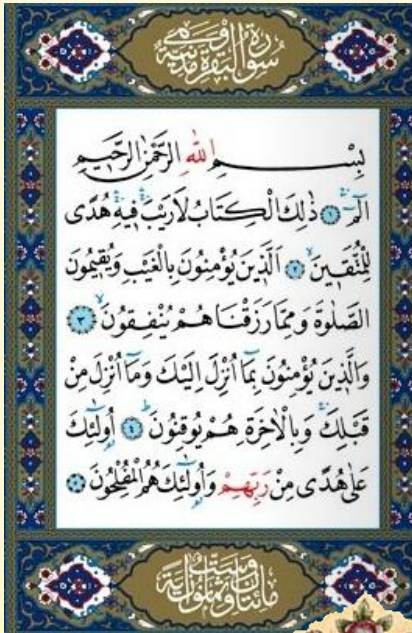 سُورَةُ الْبَقَرَةِ وَهِيَ مَدَنِيَّةٌ
بِسْــمِ اللّٰهِ الرَّحْمٰنِ الرَّحٖيمِ
الٓمٓۚ ﴿١﴾ ذٰلِكَ الْكِتَابُ لَا رَيْبَۚۛ فٖيهِۚۛ هُدًى
لِلْمُتَّقٖينَۙ ﴿٢﴾ اَلَّذٖينَ يُؤْمِنُونَ بِالْغَيْبِ وَيُقٖيمُونَ
الصَّلٰوةَ وَمِمَّا رَزَقْنَاهُمْ يُنْفِقُونَۙ ﴿٣﴾
وَالَّذٖينَ يُؤْمِنُونَ بِمَٓا اُنْزِلَ اِلَيْكَ وَمَٓا اُنْزِلَ مِنْ
قَبْلِكَۚ وَبِالْاٰخِرَةِ هُمْ يُوقِنُونَۜ ﴿٤﴾ اُولٰٓئِكَ
عَلٰى هُدًى مِنْ رَبِّهِمْ وَاُولٰٓئِكَ هُمُ الْمُفْلِحُونَ ﴿٥﴾
مائتان وست وثمانون اٰية